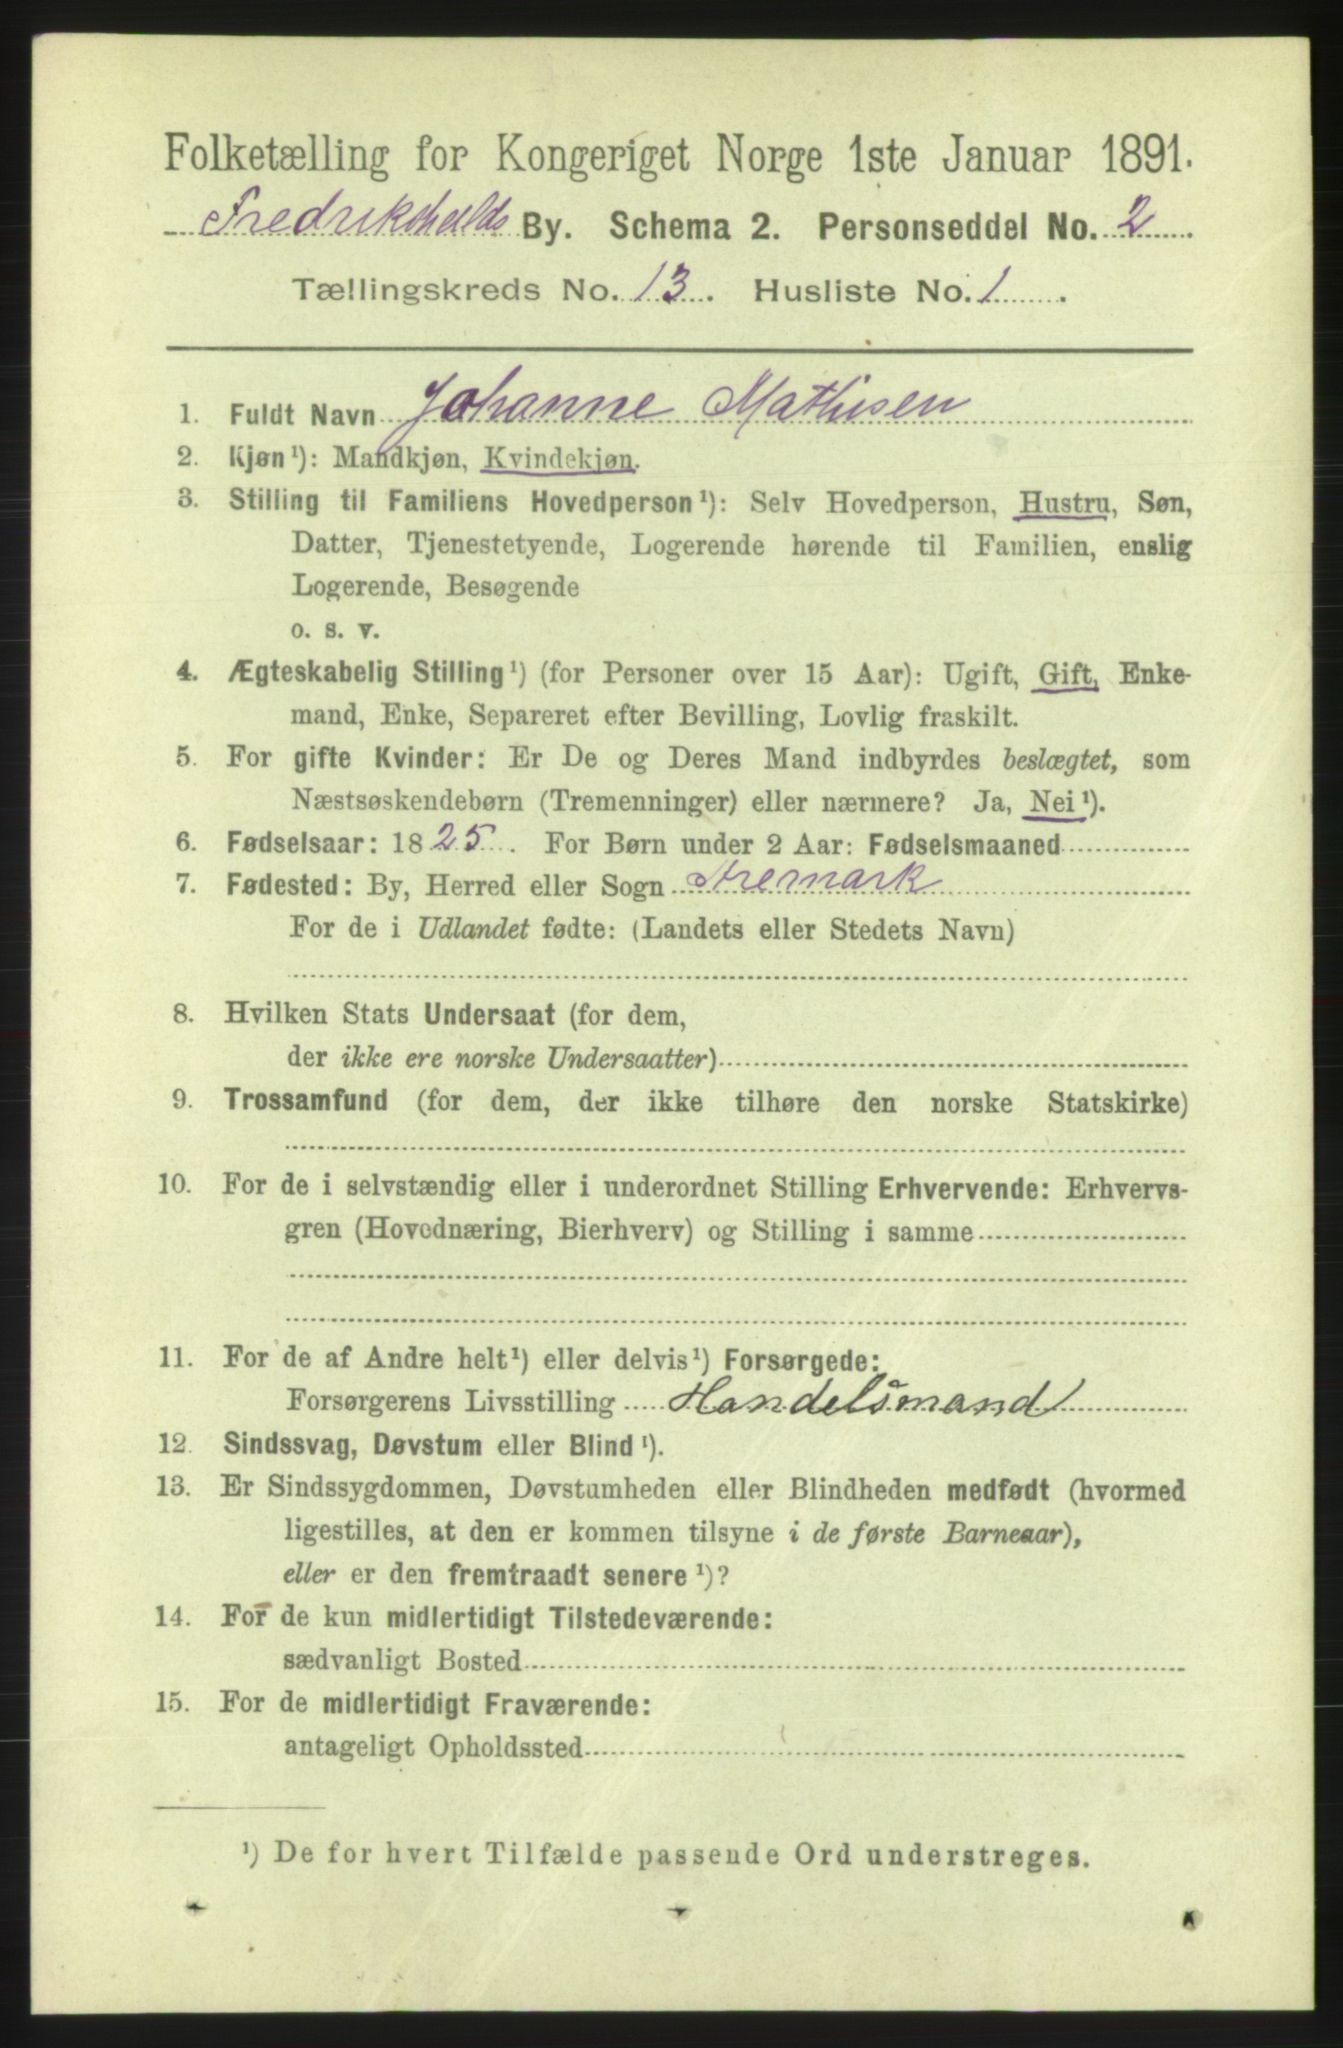 Folketælling for Kongeriget Norge 1ste Januar 1891.
Fredrikshalds By. Schema 2. Personseddel No. 2.
Tællingskreds No. 13. Husliste No. 1.
1. Fuldt Navn Johanne Mathisen
2. Kjøn¹): Mandkjøn, Kvindekjøn.
3. Stilling til Familiens Hovedperson¹): Selv Hovedperson, Hustru, Søn,
Datter, Tjenestetyende, Logerende hørende til Familien, enslig
Logerende, Besøgende
o. s. v.
4. Ægteskabelig Stilling¹) (for Personer over 15 Aar): Ugift, Gift, Enke-
mand, Enke, Separeret efter Bevilling, Lovlig fraskilt.
5. For gifte Kvinder: Er De og Deres Mand indbyrdes beslægtet, som
Næstsøskendebørn (Tremenninger) eller nærmere? Ja, Nei¹).
6. Fødselsaar: 1825. For Børn under 2 Aar: Fødselsmaaned
7. Fødested: By, Herred eller Sogn Aremark
For de i Udlandet fødte: (Landets eller Stedets Navn)
8. Hvilken Stats Undersaat (for dem,
der ikke ere norske Undersaatter)
9. Trossamfund (for dem, der ikke tilhøre den norske Statskirke)
10. For de i selvstændig eller i underordnet Stilling Erhvervende: Erhvervs-
gren (Hovednæring, Bierhverv) og Stilling i samme
11. For de af Andre helt¹) eller delvis¹) Forsørgede:
Forsørgerens Livsstilling Handelsmand
12. Sindssvag, Døvstum eller Blind¹).
13. Er Sindssygdommen, Døvstumheden eller Blindheden medfødt (hvormed
ligestilles, at den er kommen tilsyne i de første Barneaar),
eller er den fremtraadt senere¹)?
14. For de kun midlertidigt Tilstedeværende:
sædvanligt Bosted
15. For de midlertidigt Fraværende:
antageligt Opholdssted
¹) De for hvert Tilfælde passende Ord understreges.